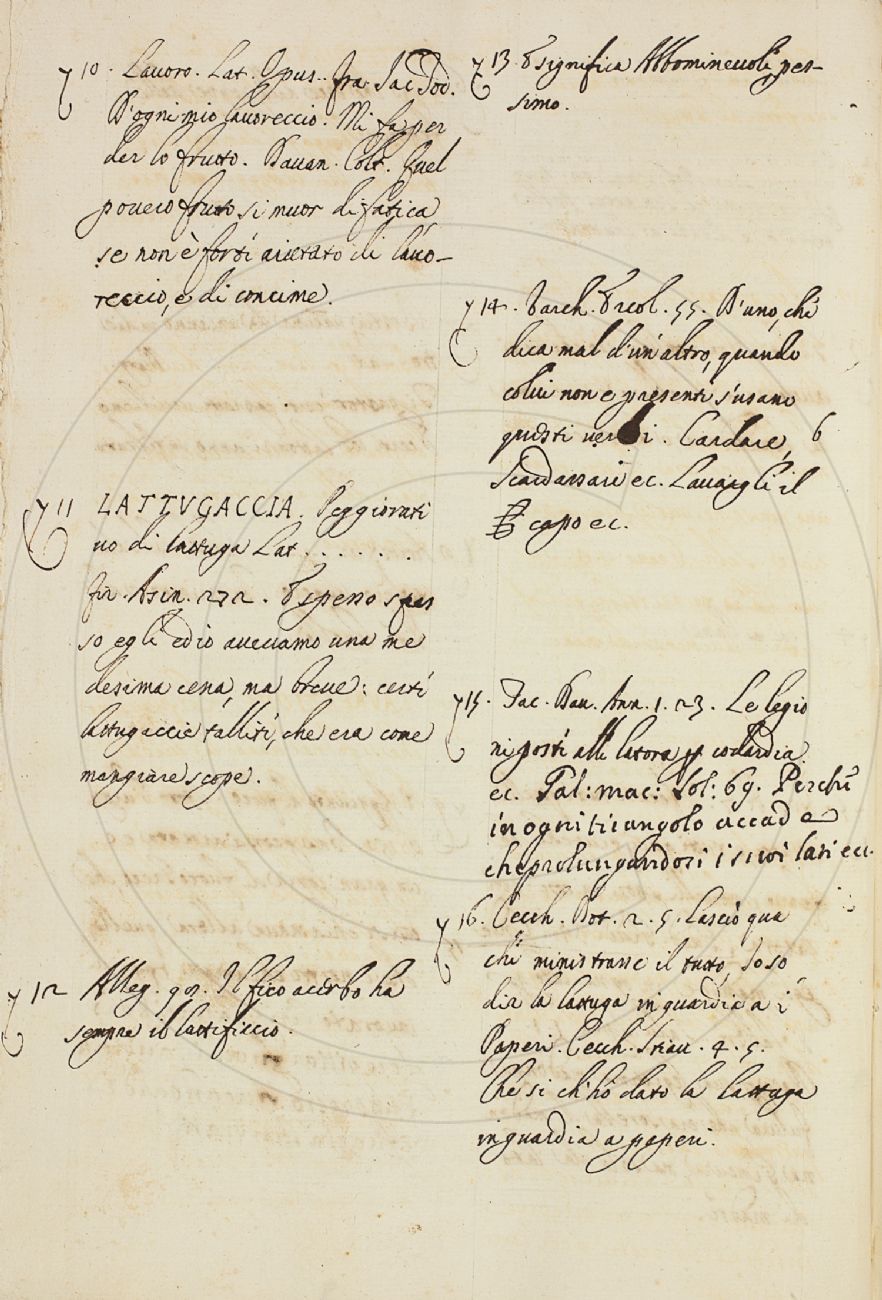 10. Lavoro. Lat. Opus.. fra Jac. Tod.
D'ogni mio lavoreccio. Mi fa per
der lo frutto. Davan. Colt. Quel
povero frutto si muor di fatica
se non è forte aiutato di lavo-
reccio, e di concime.
11 LATTVGACCIA. Peggiorati
vo di lattuga Lat. . . . . .
fir. Asin. 272. E spesso spes
so egli ed io avevamo una me
desima cena, ma breve: certe
lattugaccie tallite, che era come
mangiare scope.
12 Alleg. 92. Il fico acerbo ha
sempre il lattificcio.
13. E significa Abbominevole, pes-
simo.
14. Varch. Ercol. 55. D'uno, che
dica mal d'un altro, quando
colui non è presente s'usano
questi verbi. Cardare, 6
Scardassare ec. Lavargli il
capo ec.
15. Tac. Dav. Ann. 1. 23. Le legio
ni poste alle latora p codardia
ec. Gal: mac: Sol: 69. Perche
in ogni triangolo accade
che prolungandosi i suoi lati ecc.
16. Cecch. Dot. 2. 5. Lasciò qua
chi ministrasse il tutto, Io so
dir la lattuga in guardia a i
Paperi. Cecch. Stiav. 4. 5.
Che si ch'i'hò dato la lattuga
in guardia a paperi.